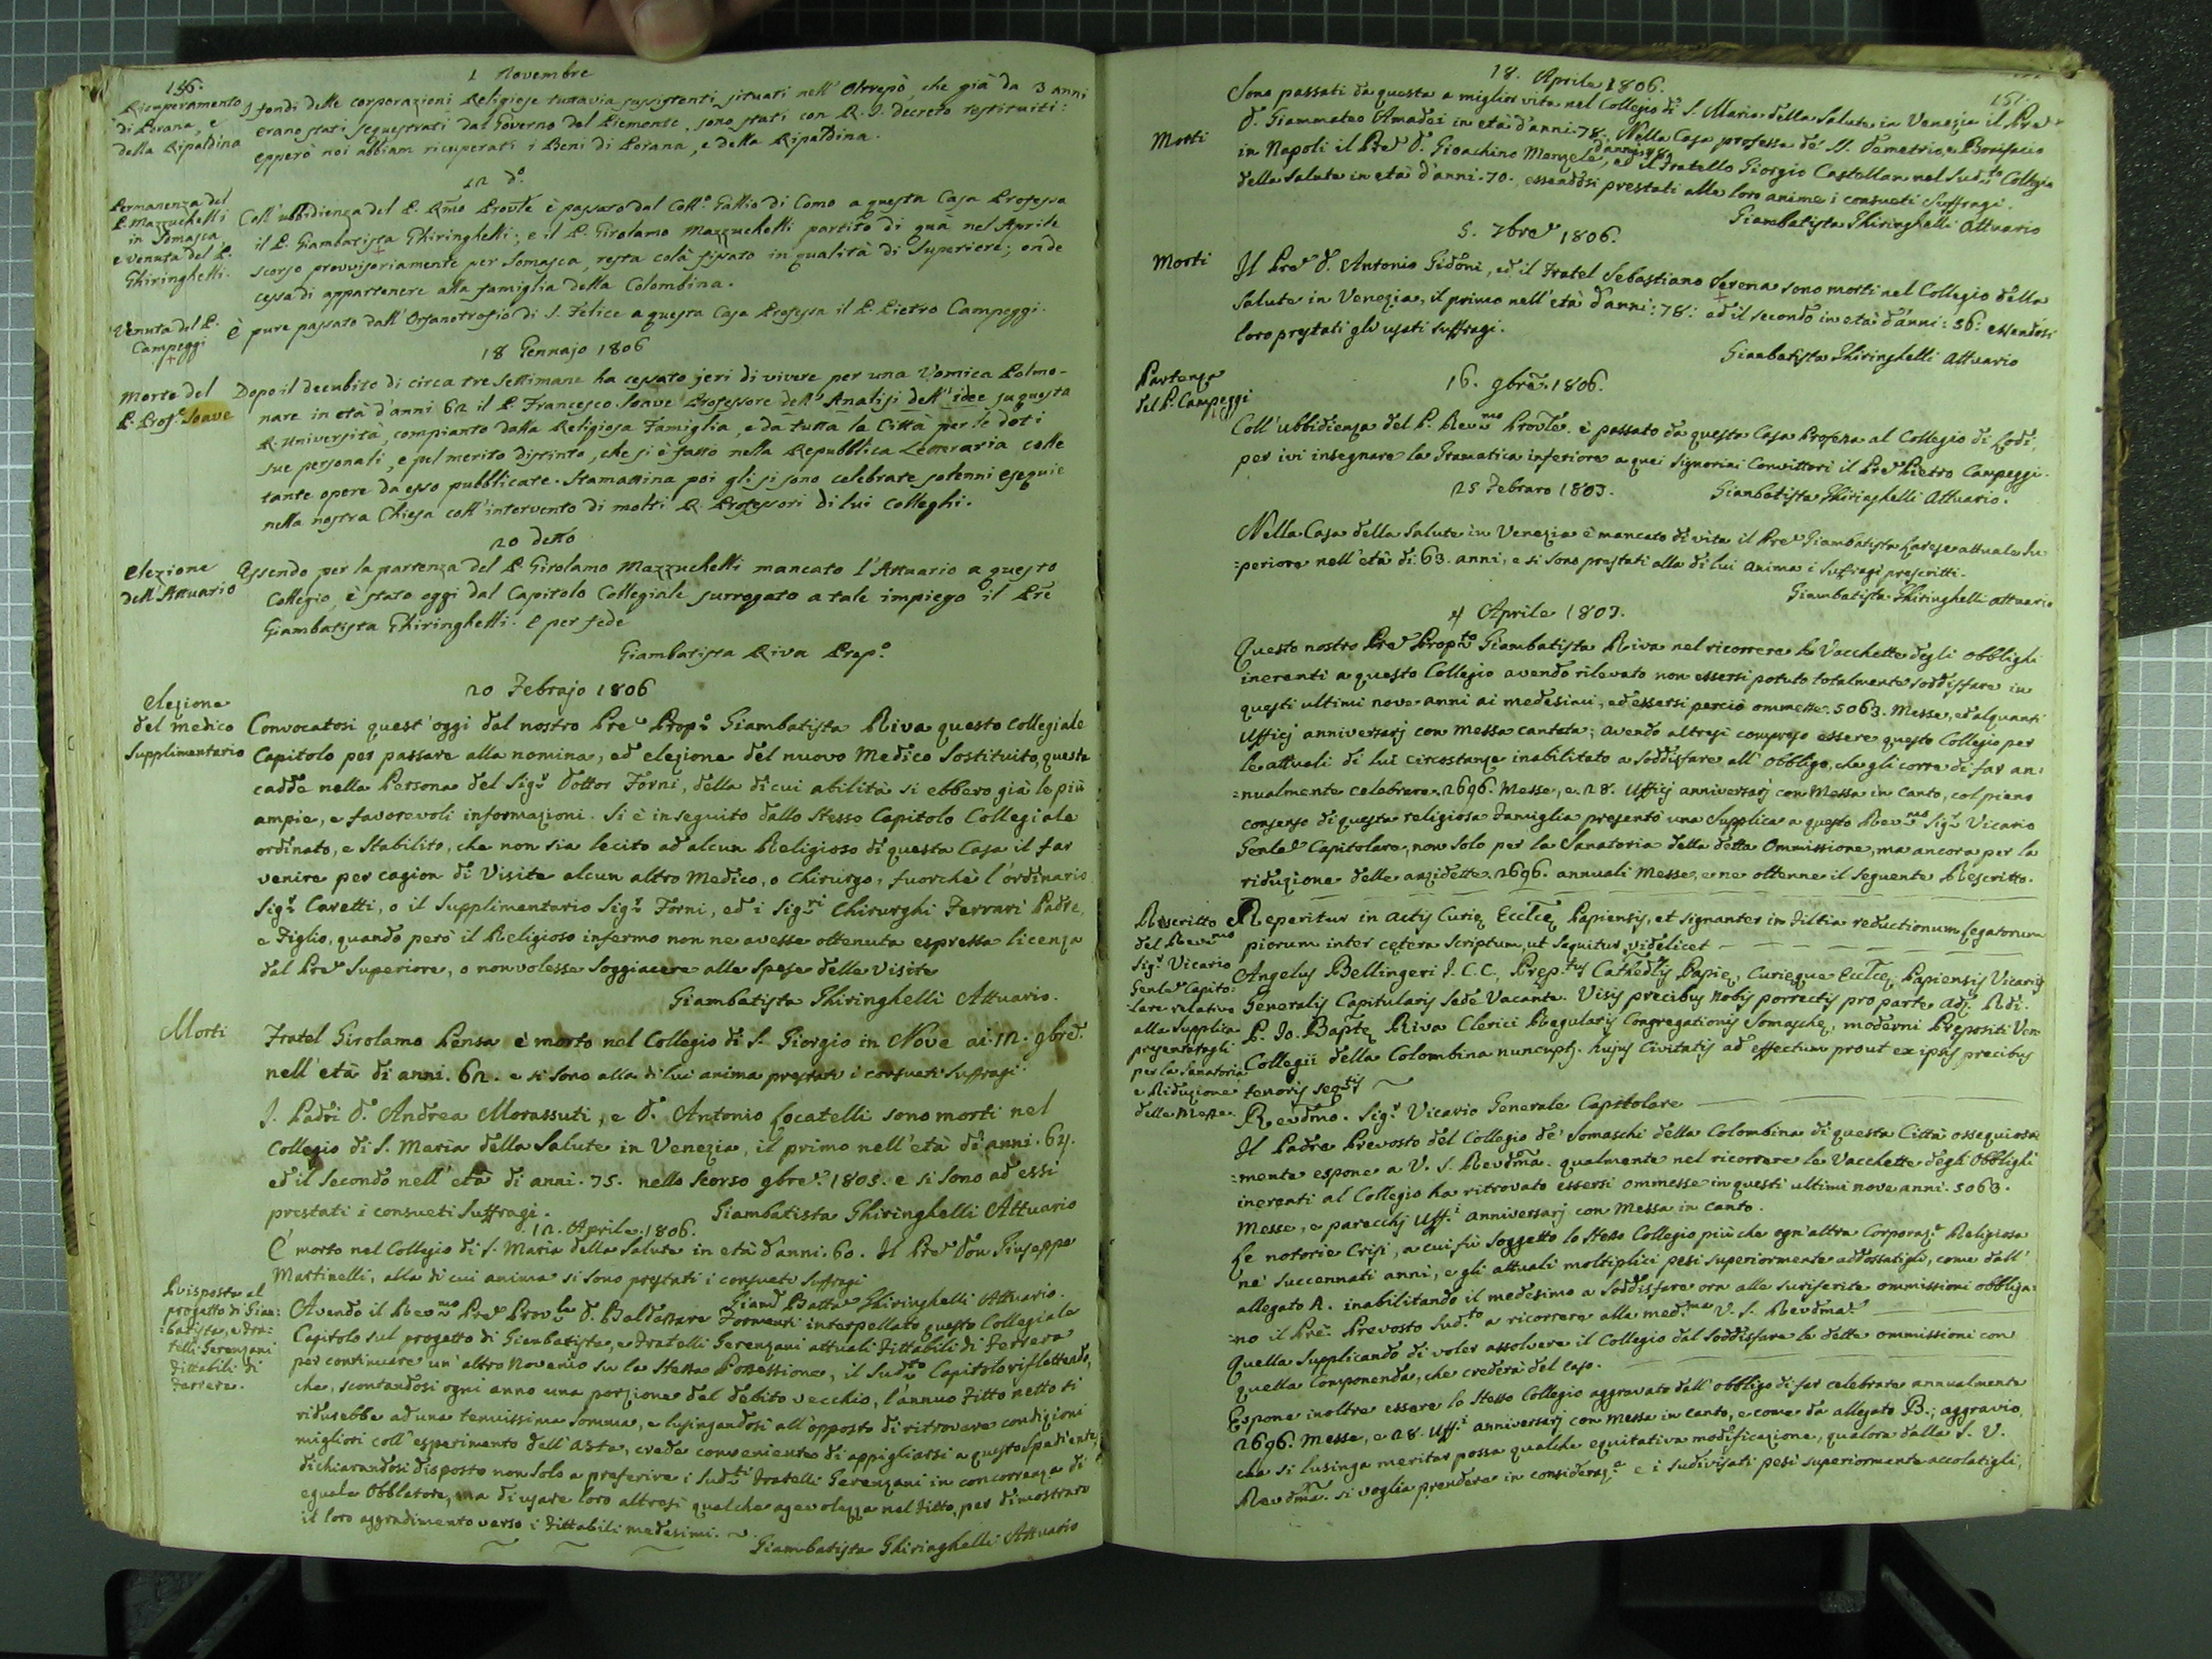 156.
1 Novembre
Ricuperamento
di Porana, e
della Ripaldina
I fondi delle corporazioni Religiose tuttavia sussistenti situati nell' Oltrepò, che già da 3 anni
erano stati sequestrati dal Governo del Piemonte, sono stati con R. I. decreto restituiti:
epperò noi abbiam ricuperati i Beni di Porana, e della Ripaldina.
12 do.
Permanenza del
P. Mazzuchelli
in Somasca
e venuta del P.
Ghiringhelli.
Coll' ubbidienza del P. Rmo Provle è passato dal Collo. Gallio di Como a questa Casa Professa
il P. Giambatista Ghiringhelli; e il P. Girolamo Mazzuchelli partito di quà nel Aprile
scorso provvisoriamente per Somasca, resta colà fissato in qualità di Superiore; onde
cessa di appartenere alla famiglia della Colombina.
Venuta del P.
Campeggi
È pure passato dall' Orfanotrofio di S. Felice a questa Casa Professa il P. Pietro Campeggi.
18 Gennajo 1806
Morte del
P. Profe. Soave
Dopo il decubito di circa tre settimane ha cessato jeri di vivere per una Vomica Polmo-
nare in età d'anni 62 il P. Francesco Soave Professore dell' Analisi dell' idee in questa
R. Università, compianto dalla Religiosa Famiglia, e da tutta la Città per le doti
sue personali, e pel merito distinto, che si è fatto nella Repubblica Letteraria colle
tante opere da esso pubblicate. Stamattina poi gli si sono celebrate solenni esequie
nella nostra Chiesa coll' intervento di molti R. Professori di lui Colleghi.
20 detto
Elezione
dell' Attuario
Essendo per la partenza del P. Girolamo Mazzuchelli mancato l'Attuario a questo
Collegio, è stato oggi dal Capitolo Collegiale surrogato a tale impiego il Pre
Giambatista Ghiringhelli. E per fede
Giambatista Riva Prepo.
20 Febrajo 1806
Elezione
del Medico
Supplimentario
Convocatosi quest'oggi dal nostro Pre Propo. Giambatista Riva questo collegiale
Capitolo per passare alla nomina, ed elezione del nuovo Medico Sostituito, questa
cadde nella Persona del Sigr Dottor Forni, della di cui abilità si ebbero già le più
ampie, e favorevoli informazioni. Si è in seguito dallo Stesso Capitolo Collegiale
ordinato, e Stabilito, che non sia lecito ad alcun Religioso di questa Casa il far
venire per cagion di Visite alcun altro Medico, o Chirurgo, fuorchè l'ordinario
Sigr. Caretti, o il Supplimentario Sigr. Forni, ed i Sigri Chirurghi Ferrari Padre,
e Figlio, quando però il Religioso infermo non ne avesse ottenuta espressa licenza
dal Pre Superiore, o non volesse Soggiacere alle Spese delle Visite
Giambatista Ghiringhelli Attuario.
Morti
Fratel Girolamo Pensa è morto nel Collegio di S. Giorgio in Nove ai 12. 9bre.
nell' età di anni. 62. e si sono alla di lui anima prestati i consueti Suffragi
I. Padri D. Andrea Morassuti, e D. Antonio Locatelli sono morti nel
Collegio di S. Maria della Salute in Venezia, il primo nell' età di anni. 64.
ed il Secondo nell' età di anni. 75. nello Scorso 9bre. 1805. e si Sono ad essi
prestati i consueti Suffragi.
Giambatista Ghiringhelli Attuario
12. Aprile. 1806.
E' morto nel Collegio di S. Maria della Salute in età d'anni. 60. Il Pre Don Giuseppe
Martinelli, alla di cui anima si Sono prestati i consueti Suffragi
Giamb Batta Ghiringhelli Attuario.
Risposta al
progetto di Giam:
:batista, e Fra-
telli Gerenzani
Fittabili di
Ferrera.
Avendo il Revmo Pre Provle D. Baldassare Formenti interpellato questo Collegiale
Capitolo sul progetto di Giambatista, e Fratelli Gerenzani attuali Fittabili di Ferrera
per continuare un' altro Novenio su la Stessa Possessione, il Sudto Capitolo riflettendo,
che, scontandosi ogni anno una porzione del debito vecchio, l'annuo Fitto netto si
ridurebbe ad una tenuissima Somma, e lusingandosi all'opposto di ritrovare condizioni
migliori coll' esperimento dell' Asta, crede conveniente di appigliarsi a questo Spediente,
dichiarandosi disposto non Solo a preferire i Sudti Fratelli Gerenzani in concorrenza di
eguale Obblatore, ma di usare loro altresì qualche agevolezza nel Fitto, per dimostrare
il loro aggradimento verso i Fittabili medesimi.
Giambatista Ghiringhelli Attuario
157.
18. Aprile 1806.
Morti
Sono passati da questa a miglior vita nel Collegio di S. Maria della Salute in Venezia il Pre
D. Giammateo Amadei in età d'anni. 78. Nella Casa professa de' SS. Demetrio, e Bonifacio
in Napoli il Pre D. Gioachino d'anni ed il Fratello Giorgio Castellan nel Sudto Collegio
della Salute in età d'anni. 70. essendosi prestati alle loro anime i consueti Suffragi.
Giambatista Ghiringhelli Attuario
5. 7bre 1806.
Morti
Il Pre D. Antonio Gidoni, ed il Fratel Sebastiano Serena sono morti nel Collegio della
Salute in Venezia, il primo nell'età d'anni: 78: ed il secondo in età d'anni: 56: essendosi
loro prestati gli usati suffragi.
Giambatista Ghiringhelli Attuario
Partenza
del P. Campeggi
16. 9bre. 1806.
Coll' ubbidienza del P. Revmo Provle. è passato da questa Casa Professa al Collegio di Lodi,
per ivi insegnare la Gramatica inferiore a quei Signorini Convittori il Pre Pietro Campeggi.
Giambatista Ghiringhelli Attuario.
25 Febraro 1807.
Nella Casa della Salute in Venezia è mancato di vita il Pre Giambatista Larese attuale Su
=periore nell'età di. 63. anni, e si sono prestati alla di lui anima i Suffragi prescritti.
Giambatista Ghiringhelli Attuario
4 Aprile 1807.
Questo nostro Pre Propto Giambatista Riva nel ricorrere le Vacchette degli obblighi
inerenti a questo Collegio avendo rilevato non essersi potuto totalmente soddisfare in
questi ultimi nove anni ai medesimi, ed essersi perciò ommesse. 5063. Messe, ed alquanti
Ufficj anniversarj con Messa cantata; avendo altresì compreso essere questo Collegio per
le attuali di lui circostanze inabilitato a soddisfare all' obbligo, che gli corre di far an:
=nualmente celebrare. 2696. Messe, e. 28. Ufficj anniversarj con Messa in Canto, col pieno
consenso di questa religiosa Famiglia presentò una Supplica a questo Revmo Sigr Vicario
Genle Capitolare, non solo per la Sanatoria della detta Ommissione, ma ancora per la
riduzione delle anzidette. 2696. annuali Messe, e ne ottenne il seguente Rescritto.
Rescritto
del Revmo
Sigr Vicario
Genle Capito:
lare relativo
alla Supplica
presentatagli
per la Sanatoria
e Riduzione
delle Messe.
Reperitur in actis Curię Ecclię Papiensis, et signanter in Filtia reductionum Legatorum
piorum inter cętera Scriptum, ut Sequitur videlicet
Angelus Bellingeri I. C. C. Pręptus Cathedlis Papię, Curięque Ecclię Papiensis Vicarius
Generalis Capitularis Sede Vacante. Visis precibus Nobis porrectis pro parte adm. Rdi.
P. Jo. Baptę Riva Clerici Regularis Congregationis Somaschę, moderni Prępositi Ven
Collegii della Colombina nuncupti. hujus Civitatis ad effectum prout ex ipsis precibus
tenoris seqtis
Revdmo. Sigr Vicario Generale Capitolare
Il Padre Prevosto del Collegio de' Somaschi della Colombina di questa Città ossequiosa
=mente espone a V. S. Revdma. qualmente nel ricorrere le Vacchette degli Obblighi
inerenti al Collegio ha ritrovato essersi ommesse in questi ultimi nove anni. 5063.
Messe, e parecchj Uffi. anniversarj con Messa in canto.
Le notorie Crisi, a cui fù soggetto lo Stesso Collegio più che ogn'altra Corporaze Religiosa
ne' succennati anni, e gli attuali moltiplici pesi superiormente addossatigli, come dall'
allegato A. inabilitando il medesimo a Soddisfare ora alle suriferite ommissioni obbliga:
=no il Pre. Prevosto Sudto a ricorrere alla medma V. S. Revdma.
Quella Supplicando di voler assolvere il Collegio dal Soddisfare le dette ommissioni con
quella Componenda, che crederà del caso.
Espone inoltre essere lo Stesso Collegio aggravato dall' obbligo di far celebrare annualmente
2696. Messe, e 28. Uffi. anniversarj con Messa in canto, e come da allegato B.; aggravio,
che si lusinga meritar possa qualche equitativa modificazione, qualora dalla S. V.
Revdma. si voglia prendere in considerazne e i sudivisati pesi superiormente accolatigli,